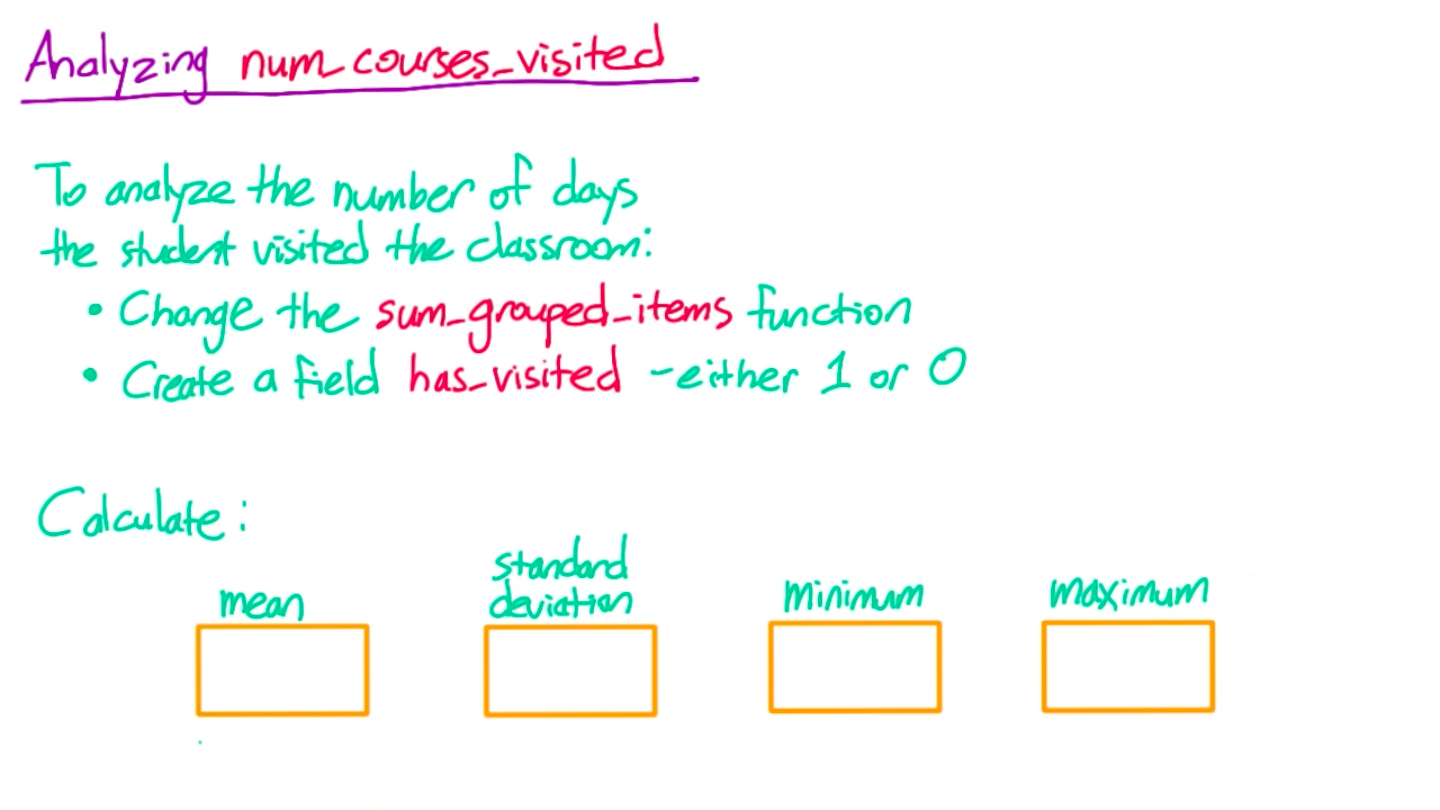 Analyzing num_courses_visited
To analyze the number of days
the student visited the classroom:
• Change the sum_grouped_items function
• Create a field has_visited - either 1 or 0
Calculate:
mean
standard
deviation
minimum
maximum